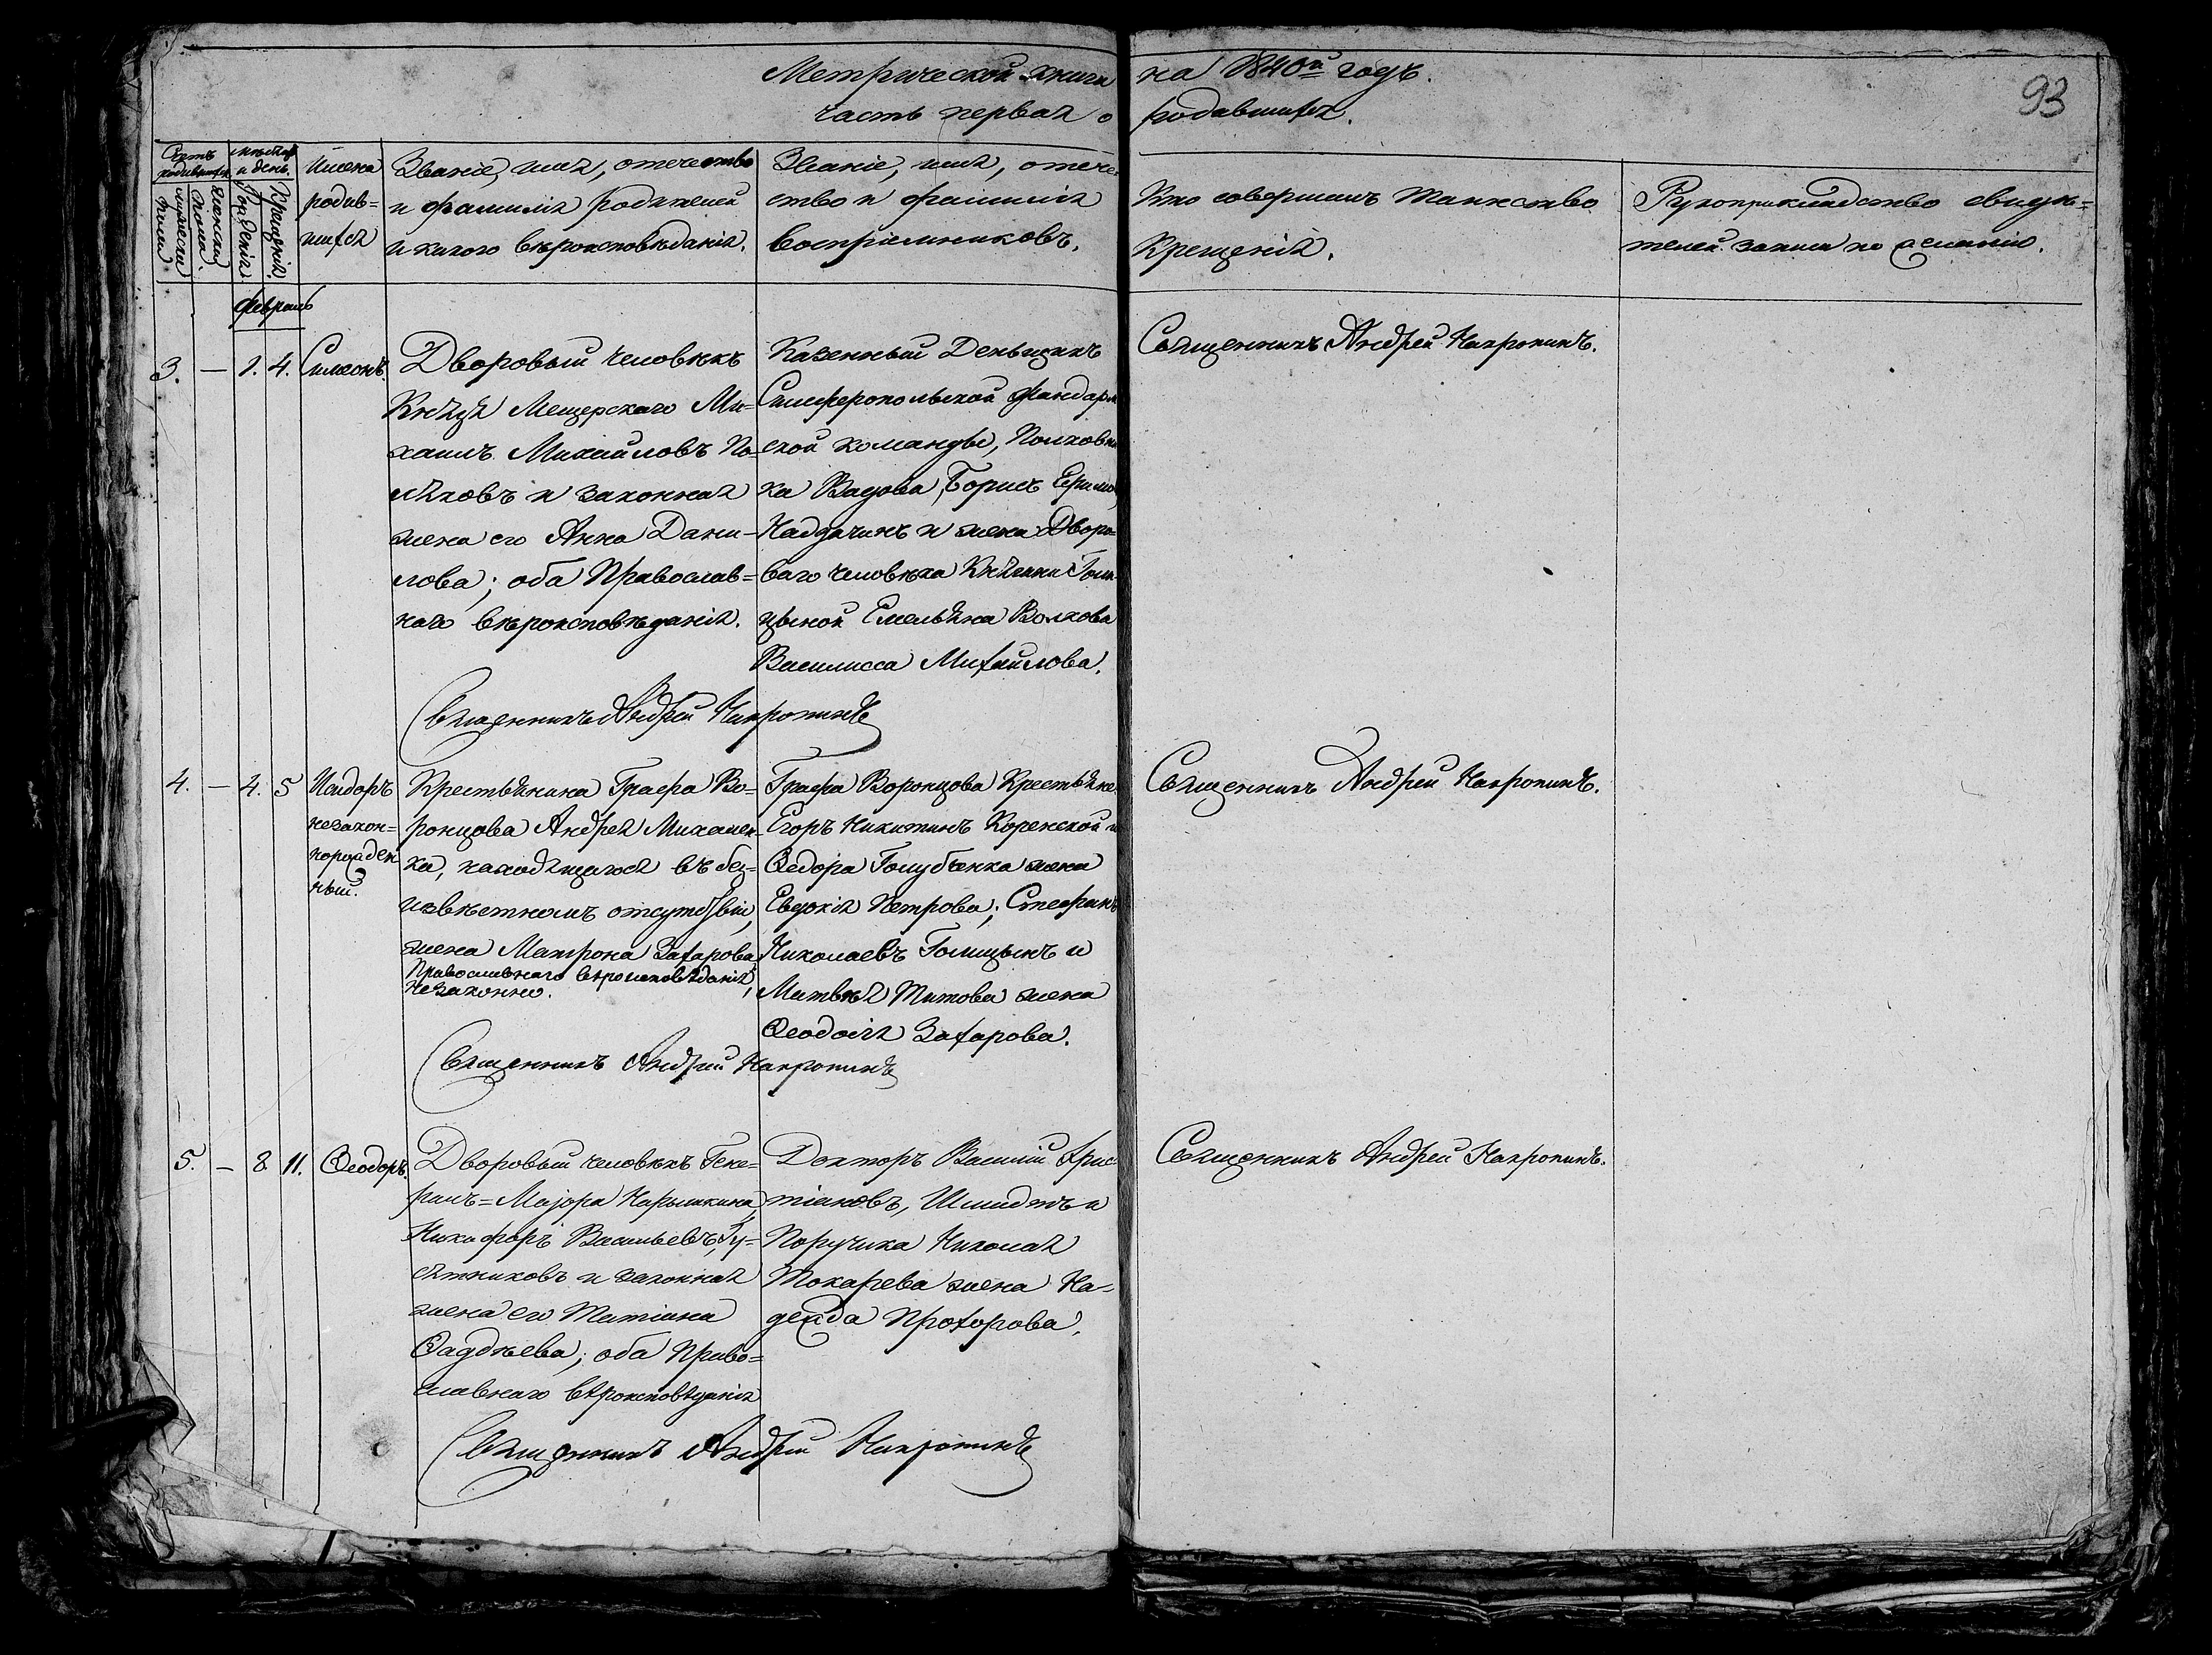 Метрической книги на 1840й годъ.
часть первая о родившихся.
93
Счетъ родившихся
мужеска пола
женска пола.
мѣсяцъ и день.
Рожденія
Крещенія.
Имена
родив=
шихся
Званіе, имя, отечество
и фамилія родителей
и какого вѣроисповѣданія.
Званіе, имя, отече-
ство и фамилія
Воспріемниковъ.
Кто совершалъ таинство
Крещенія.
Рукоприкладство свидѣ=
телей записи по желанію.
Февраль
3. — 1. 4. Симеонъ.
Дворовый человѣкъ
Князя Мещерскаго Ми=
хаилъ Михайловъ По=
ляковъ и законная
жена его Анна Дани-
лова; оба Православ=
наго вѣроисповѣданія.
Казенный Деньщикъ
Симферопольской Жандарм
ской команды, Полковни
ка Борисъ
и жена Дворо=
ваго человѣка Княгини Голи
цыной Емельяна Волкова
Василисса Михайлова.
Священникъ Андрей Накропинъ.
Священникъ Андрей Накропинъ
4. — 4. 5 Исидоръ
незакон=
норожден
ный.
Крестьянина Графа Во=
ронцова Андрея Михален-
ка, находящагося въ без=
извѣстномъ отсутствіи,
жена Матрона Захарова
Православнаго вѣроисповѣданія,
Незаконно.
Графа Воронцова Крестьяне
Егоръ Никитинъ Коренской и
Ѳедора Голубченка жена
Евдокія Петрова; Стефанъ
Николаевъ Голицынъ и
Матвѣя Титова жена
Ѳеодосія Захарова.
Священникъ Андрей Накропинъ.
Священникъ Андрей Накропинъ
5. — 8 11. Ѳеодоръ.
Дворовый человѣкъ Гене=
ралъ=Маіора Нарышкина,
Никифоръ Васильевъ, Гу=
сятниковъ и законная
жена его Татіана
Ѳаддѣева; оба Право=
славнаго вѣроисповѣданія
Докторъ Василій Хрис
тіановъ, Шмидтъ и
Поручика Николая
Токарева жена На=
дежда Прохорова.
Священникъ Андрей Накропинъ.
Священникъ Андрей Накропинъ